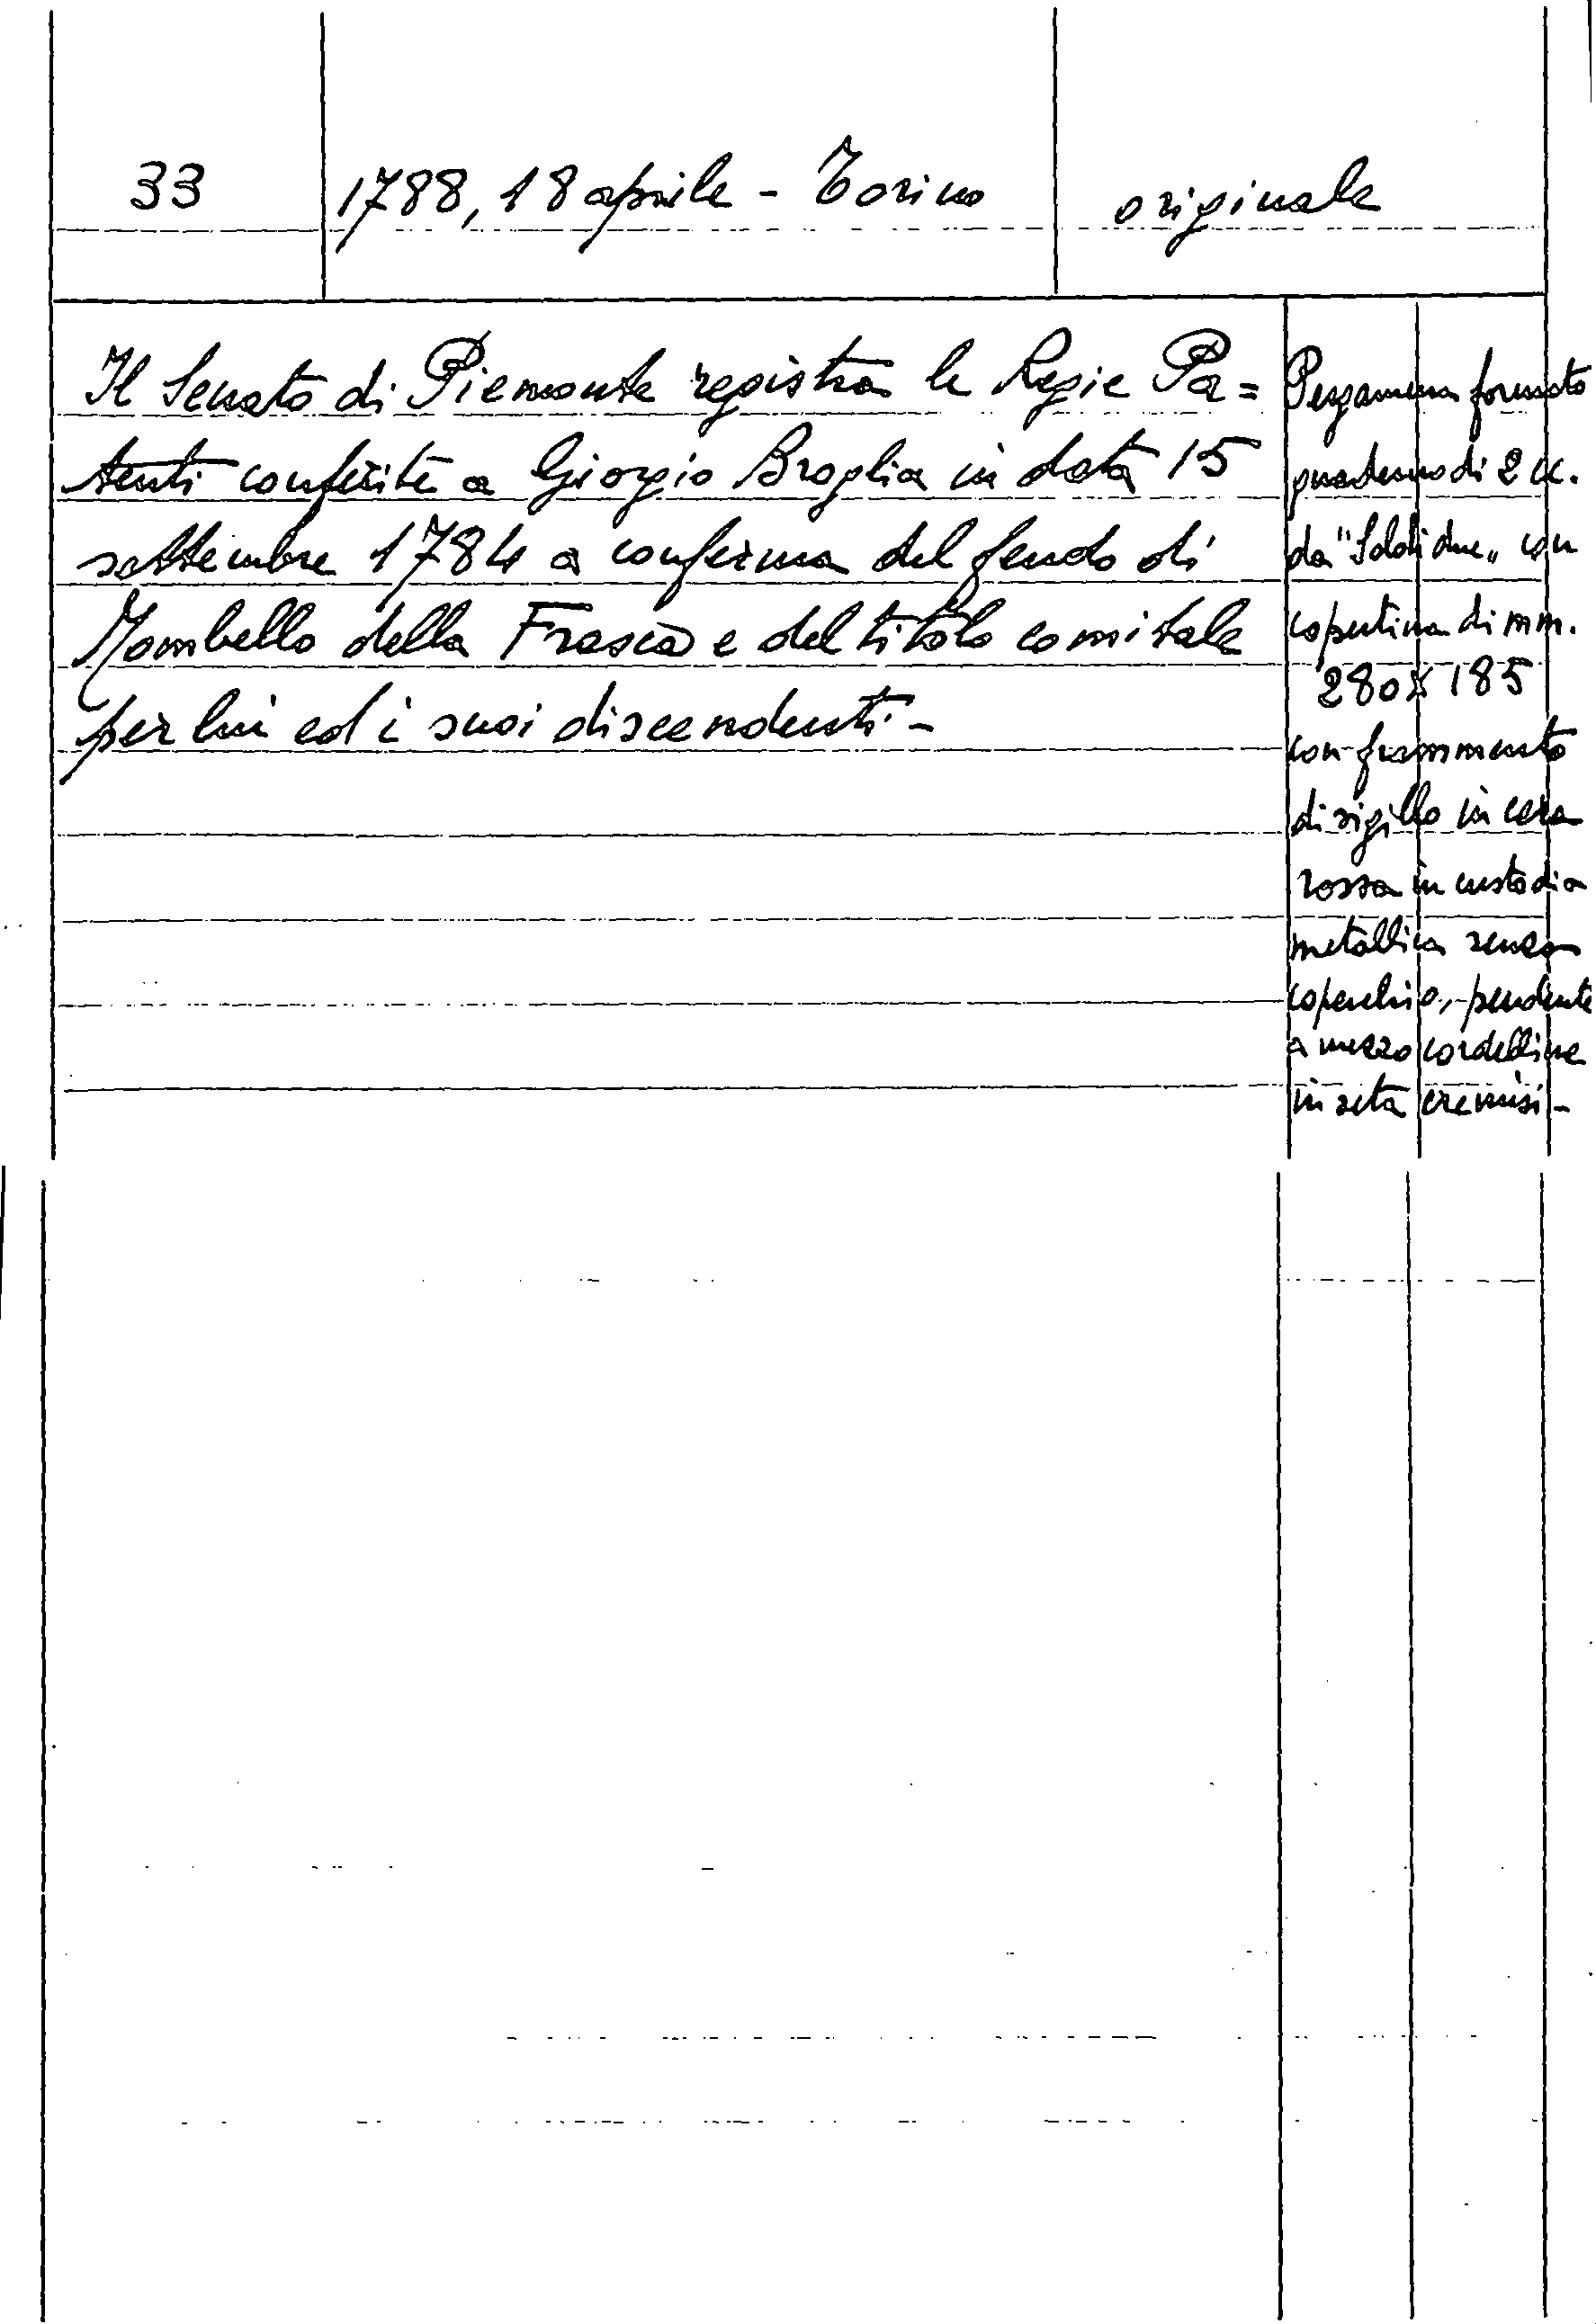 33
1788, 18 aprile - Torino
originale
Il Senato di Piemonte registra le Regie Pa=
tenti conferite a Giorgio Broglia in data 15
settembre 1784 a conferma del feudo di
Mombello della Frasca e del titolo comitale
per lui ed i suoi discendenti -
Pergamena formato
quaderno di 2 cc.
da "Soldi due" con
copertina di mm.
280x185
con frammento
di sigillo in cera
rossa in custodia
metallica senza
coperchio, pendente
a mezzo cordelline
in seta cremisi -